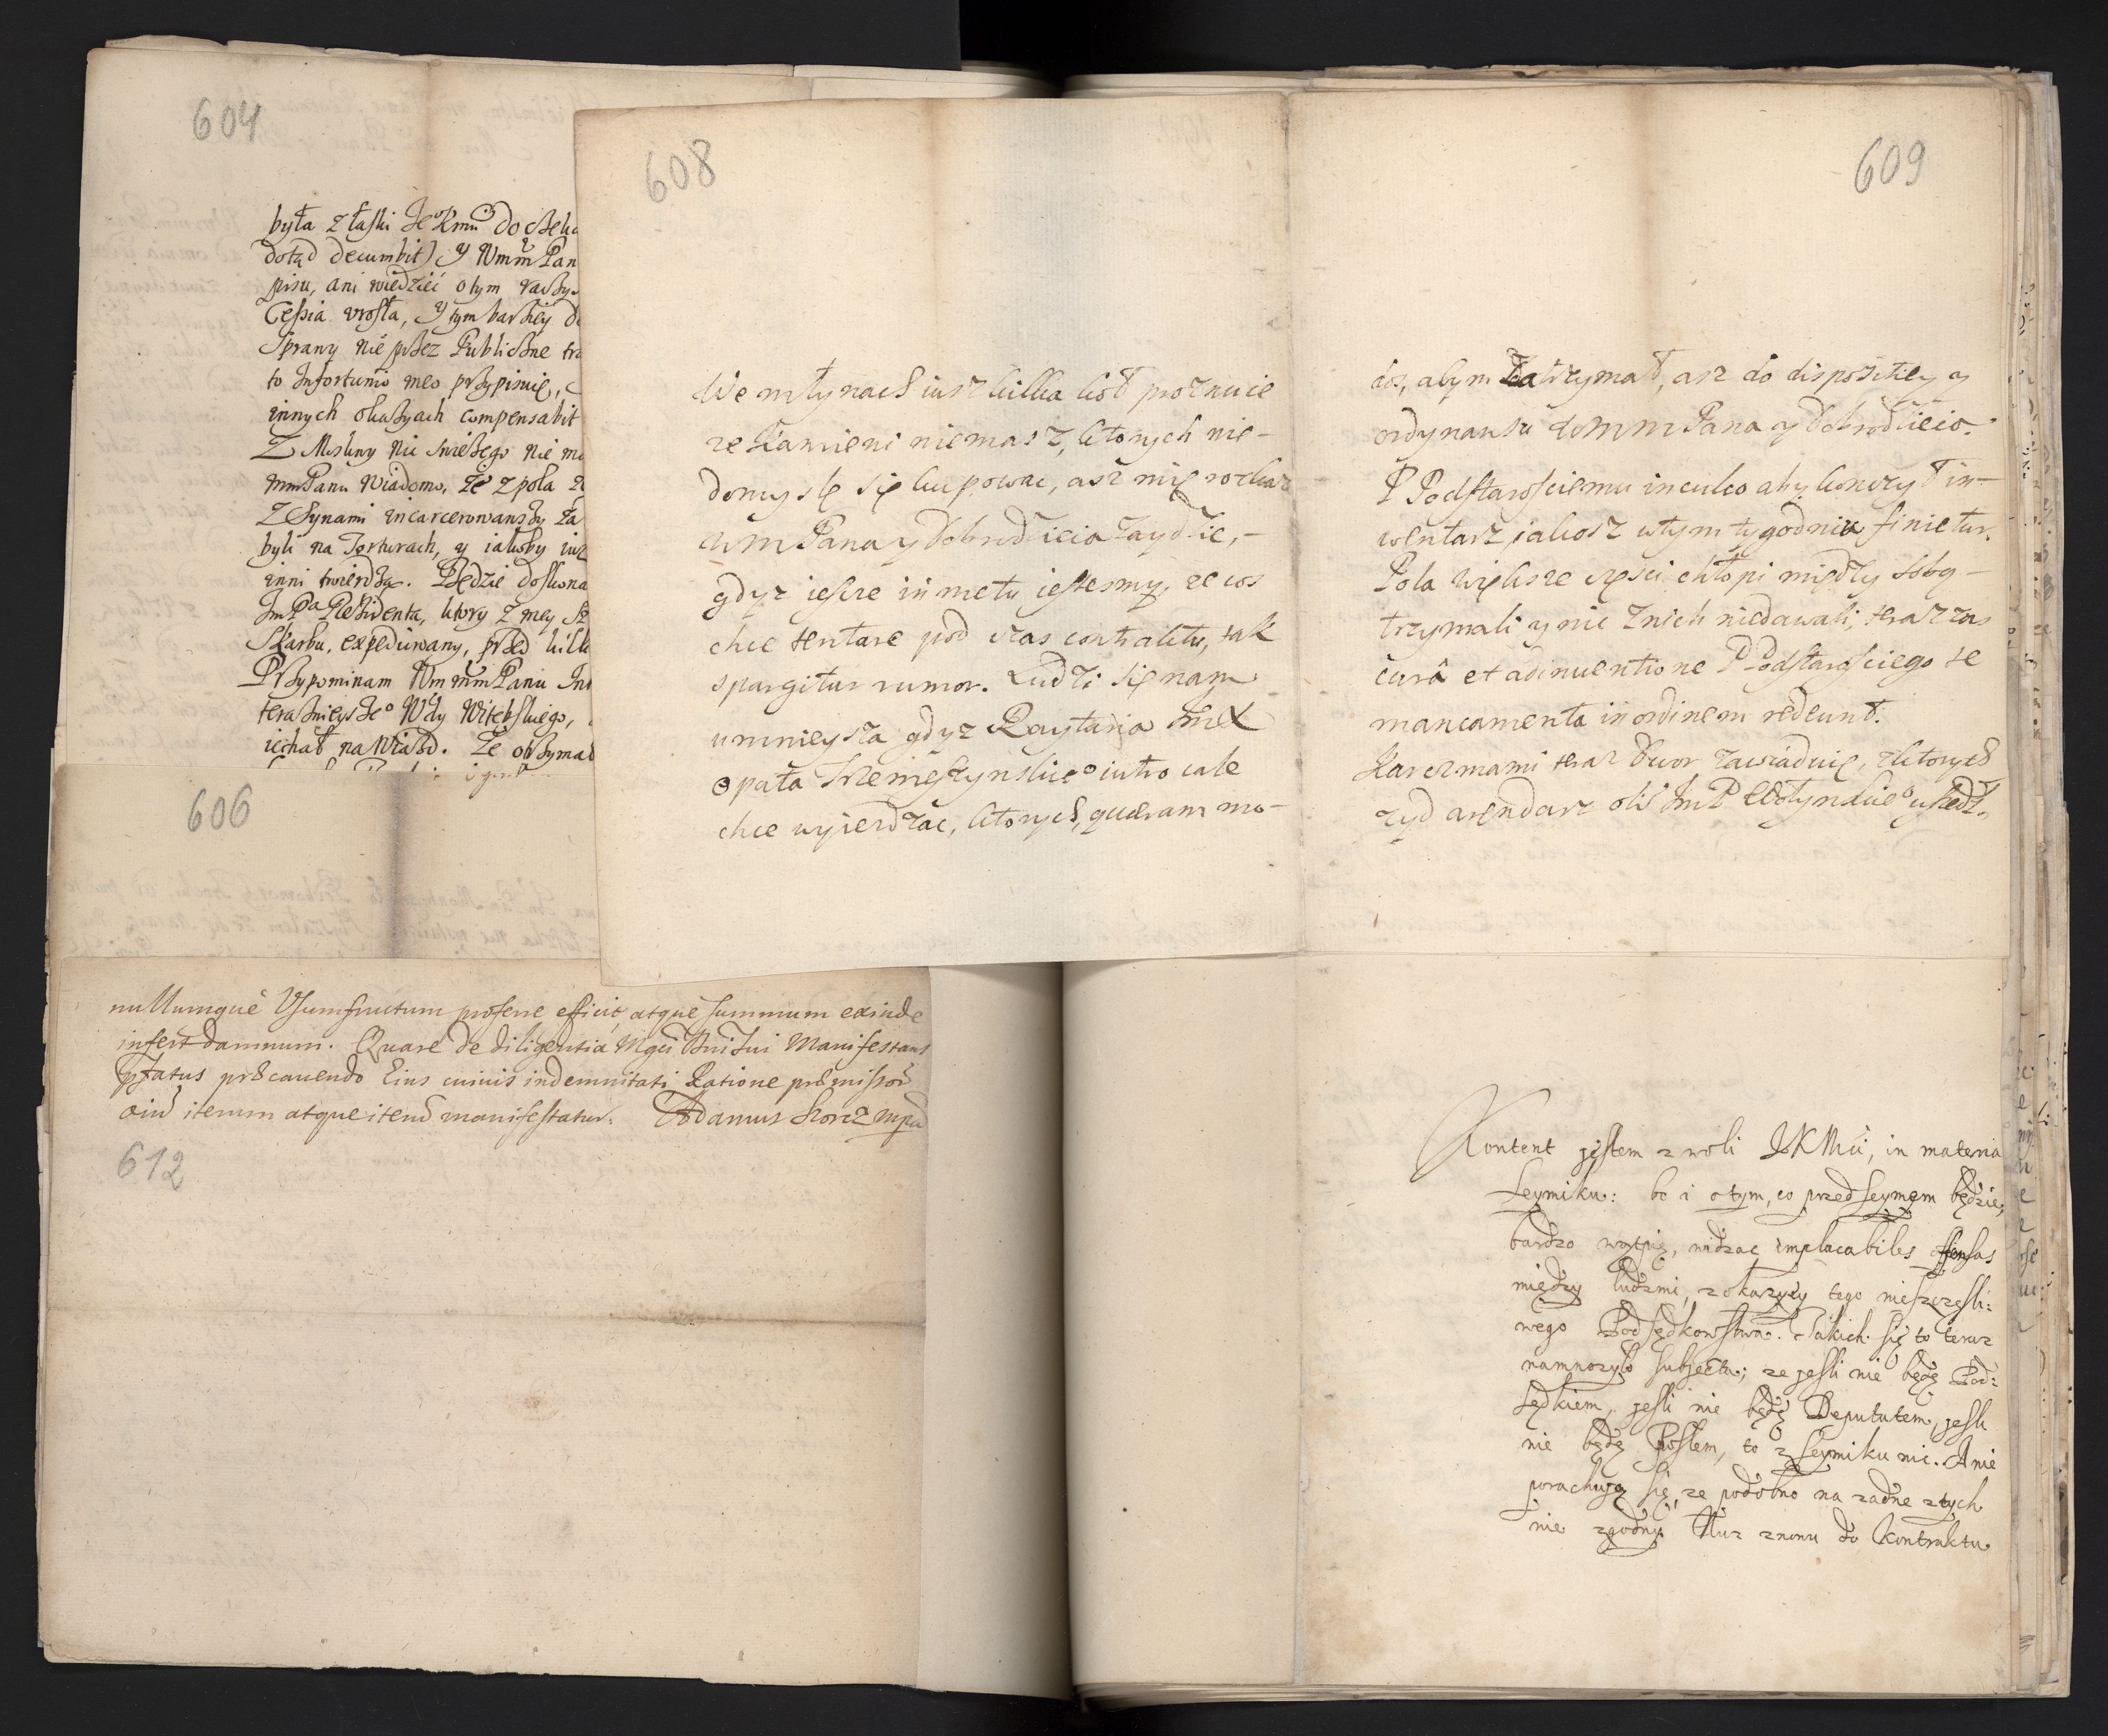 604
była z łaski Je° Kmċi do
dotąd decumbit) y Wmm Pan
pisu, ani wiedzieć o tym
Cessia urosła, y tym barziey
Sprawy nie przez Publiczne
to Infortunio meo przypisuię,
innych okazyach compensabit
Z Moskwy nic swieżego nie
mmPanu wiadomo, że z pola
Z Synami incarcerowanszy za
byli na Torturach, y iakoby iuż
inni twierdzą. Będzie doskona
Im Pa Rezidenta, ktory z mey
Skarbu, expediiowany, przed kilk
Przypominam Wm mm Panu
teraznieysze° Wdy Witebskiego,
iechał na Wiazd. Że otrzymał
606
608
We młynach iusz kilka koł proznuie
ze Kamieni niemasz, ktorych nie-
domyslę się kupowac, asz mię rozkaz
wm Pana y Dobrodzieia zaydzie,-
gdyz iescze in metu iestesmy, ze cos
chce tentare pod czas contraktu, tak
spargitur rumor. Ludzi się nam
umnieysza gdyz Raytaria ImX
Opata Trzemęszynskie° iutro cale
chce wyiezdzac, ktorych, quaeram mo-
609
dos, abym zatrzymał, asz do dispozitiey y
ordynansu wmm Pana y Dobrodzieia.
P Podstarosciemu inculco aby konczył in-
wentarz, iakosz w tym tygodniu finietur.
Pola większe częsci chłopi między sobą-
trzymali y nic z nich niedawali; teraz zas
curâ et adinventione P Podstarosciego te
mancamenta in ordinem redeunt.
Karczmami teraz Dwor zawiaduię, z ktorych
zyd arendarz ImP uszedł.
nullumque Usumfructum proferre efficit, atque summum exinde
infert damnum. Quare de diligentia Mgci Dni Sui Manifestans
ptatus praecavendo Eius cuiuis indemnitati Ratione praemissor
oiu iterum atque iteru manifestatur. Adamus mpa
612
Kontent jestem z woli JKMċi, in materia
Seymiku: bo i o tym, co przed seymem będzie,
bardzo wątpię, widząc implacabiles offensas
między ludzmi, z okazyey tego nieszczęsli:
wego Podsędkowstwa. Takich się to teraz
namnozyło subjecta; ze jesli nie będę Pod:
sędkiem, jesli nie będę Deputatem, jesli
nie będę Posłem, to z Seymiku nic. A nie
porachują się, ze podobno na zadne z tych
nie zgodny. Nuz znowu do Kontraktu